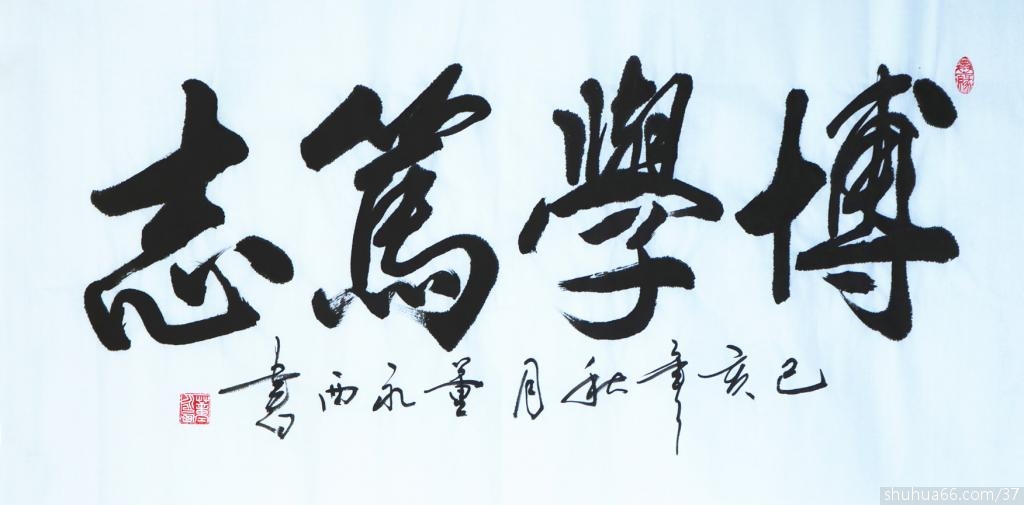 博學篤志
己亥年秋月董永西書
shuhua66.com/37